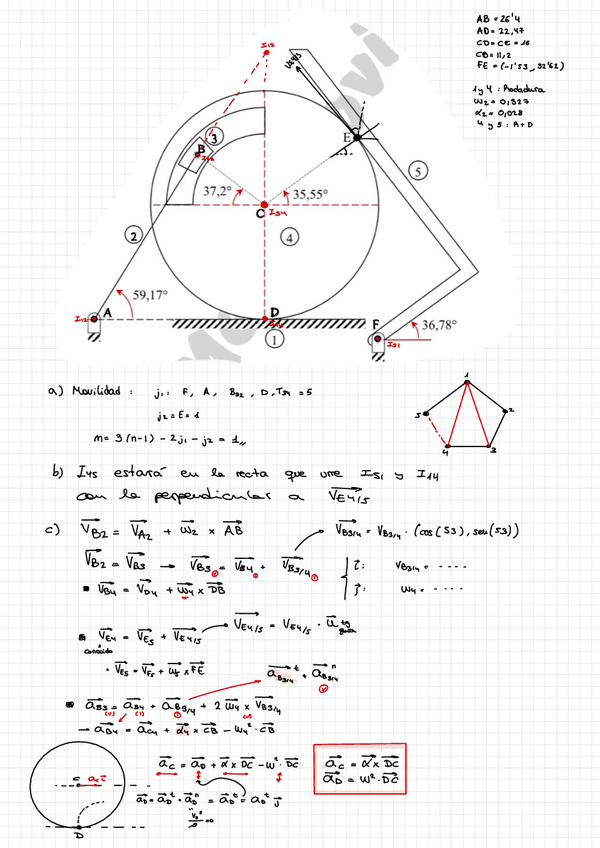 AB = 26'4
AD = 22,47
CD = CE = 16
CB = 11,2
FE = (-1'53, 32'62)
1 y 4 : Rodadura
ω2 = 0,327
α2 = 0,028
4 y 5 : A+D
I13
VE4/5
3
B
E
5
37,2°
35,55°
C I34
2
4
59,17°
I12 A
D
F
36,78°
I51
1
a) Movilidad : j1: F, A, B32, D, T34 = 5
j2 = E = 1
m = 3(n-1) - 2j1 - j2 = 1
1
5
2
4
3
b) I45 estará en la recta que une I51 y I14
con la perpendicular a VE4/5
c) VB2 = VA2 + ω2 × AB
VB3/4 = VB3/4 · (cos(53), sen(53))
VB2 = VB3 → VB3 = VB4 + VB3/4
i: VB3/4 = ----
▪ VB4 = VD4 + ω4 × DB
j: ω4 = ----
▪ VE4 = VE5 + VE4/5
VE4/5 = VE4/5 · u tg guía
conocida
· VE5 = VF5 + ω5 × FE
aB3/4 t + aB3/4 n
▪ aB3 = aB4 + aB3/4 + 2 ω4 × VB3/4
→ aB4 = aC4 + α4 × CB - ω4² · CB
aC = aD + α × DC - ω² · DC
aC = α × DC
aD = ω² · DC
C aC i
aD = aD t + aD n = aD t = aD t j
D